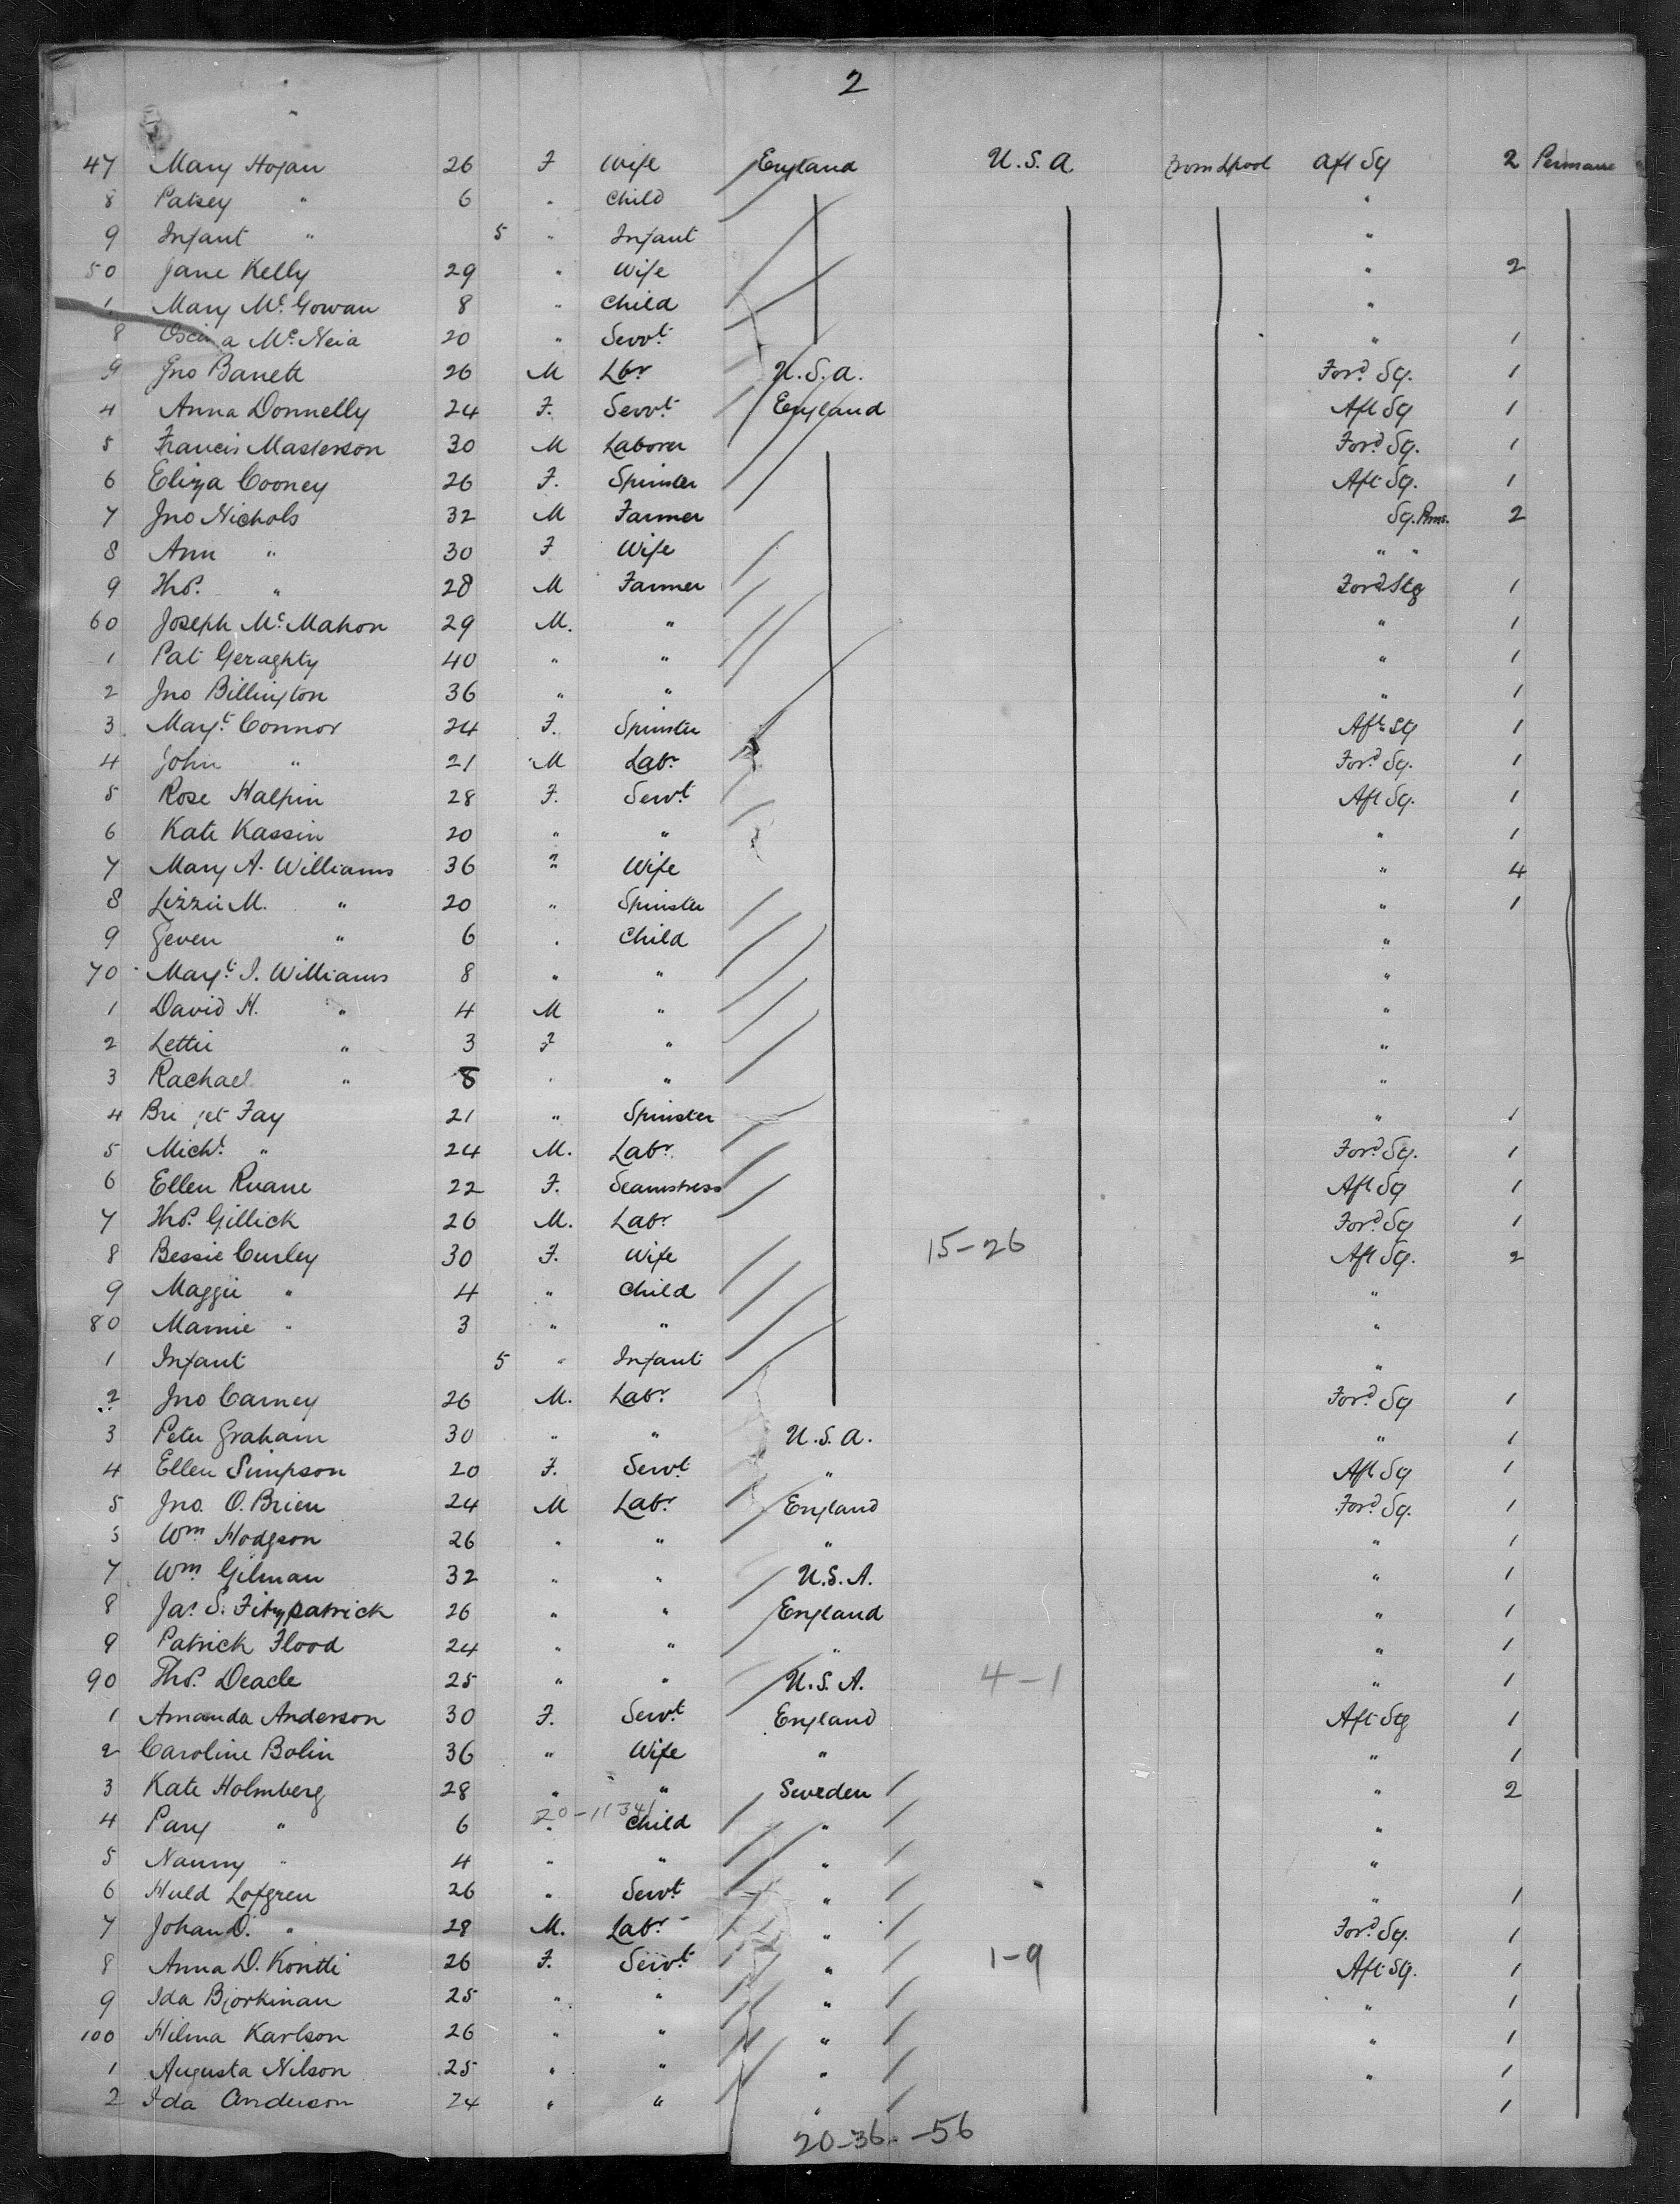 2
47 Mary Hogan 26 F Wife England U.S.A from Lpool Aft Sg 2 Permane
8 Patsey " 6 " Child "
9 Infant " 5 " Infant "
50 Jane Kelly 29 " Wife " 2
1 Mary McGowan 8 " Child "
8 a McNeia 20 " Servt " 1
9 Jno Barrett 26 M Lbr U.S.a. Ford Sg. 1
4 Anna Donnelly 24 F. Servt England Aft Sg 1
5 Francis Masterson 30 M Laborer Ford Sg. 1
6 Eliza Cooney 26 F. Spinster Aft Sg. 1
7 Jno Nichols 32 M Farmer Sg. Rms. 2
8 Ann " 30 F Wife " "
9 Thos. " 28 M Farmer Ford Stg 1
60 Joseph McMahon 29 M. " " 1
1 Pat Geraghty 40 " " " 1
2 Jno Billington 36 " " " 1
3 Margt Connor 24 F. Spinster Aft Stg 1
4 John " 21 M Labr Ford Sg. 1
5 Rose Halpin 28 F. Servt Aft Sg. 1
6 Kate Kassin 20 " " " 1
7 Mary A. Williams 36 " Wife " 4
8 Lizzie M. " 20 " Spinster " 1
9 Geven " 6 " Child "
70 Margt J. Williams 8 " " "
1 David H. " 4 M " "
2 Lettie " 3 F " "
3 Rachael " 8 " " "
4 Bri get Fay 21 " Spinster " 1
5 Michl " 24 M. Labr Ford Sg. 1
6 Ellen Ruane 22 F. Seamstress Aft Sg 1
7 Thos. Gillick 26 M. Labr Ford Sg 1
8 Bessie Curley 30 F. Wife 15-26 Aft Sg. 2
9 Maggie " 4 " Child "
80 Mamie " 3 " " "
1 Infant 5 " Infant "
2 Jno Carney 26 M. Labr Ford Sg 1
3 Peter Graham 30 " " U.S.a. " 1
4 Ellen Simpson 20 F. Servt " Aft Sg 1
5 Jno. O.Brien 24 M Labr England Ford Sg. 1
Wm Hodgson 26 " " " " 1
7 Wm Gilman 32 " " U.S.A. " 1
8 Jas S. Fitzpatrick 26 " " England " 1
9 Patrick Flood 24 " " " " 1
90 Thos. Deacle 25 " " U.S.A. 4-1 " 1
1 Amanda Anderson 30 F. Servt England Aft Stg 1
2 Caroline Bolin 36 " Wife " " 1
3 Kate Holmberg 28 " " Sweden " 2
4 Pary " 6 " Child " "
5 Nanny " 4 " " " "
6 Huld Lofgren 26 " Servt " " 1
7 Johan O. " 28 M. Labr " Ford Sg. 1
8 Anna D. Kontti 26 F. Servt " 1-9 Aft Sg. 1
9 Ida Bjorkman 25 " " " " 1
100 Hilma Karlson 26 " " " " 1
1 Augusta Nilson 25 " " " " 1
2 Ida Anderson 24 " " " 1
20-36-56